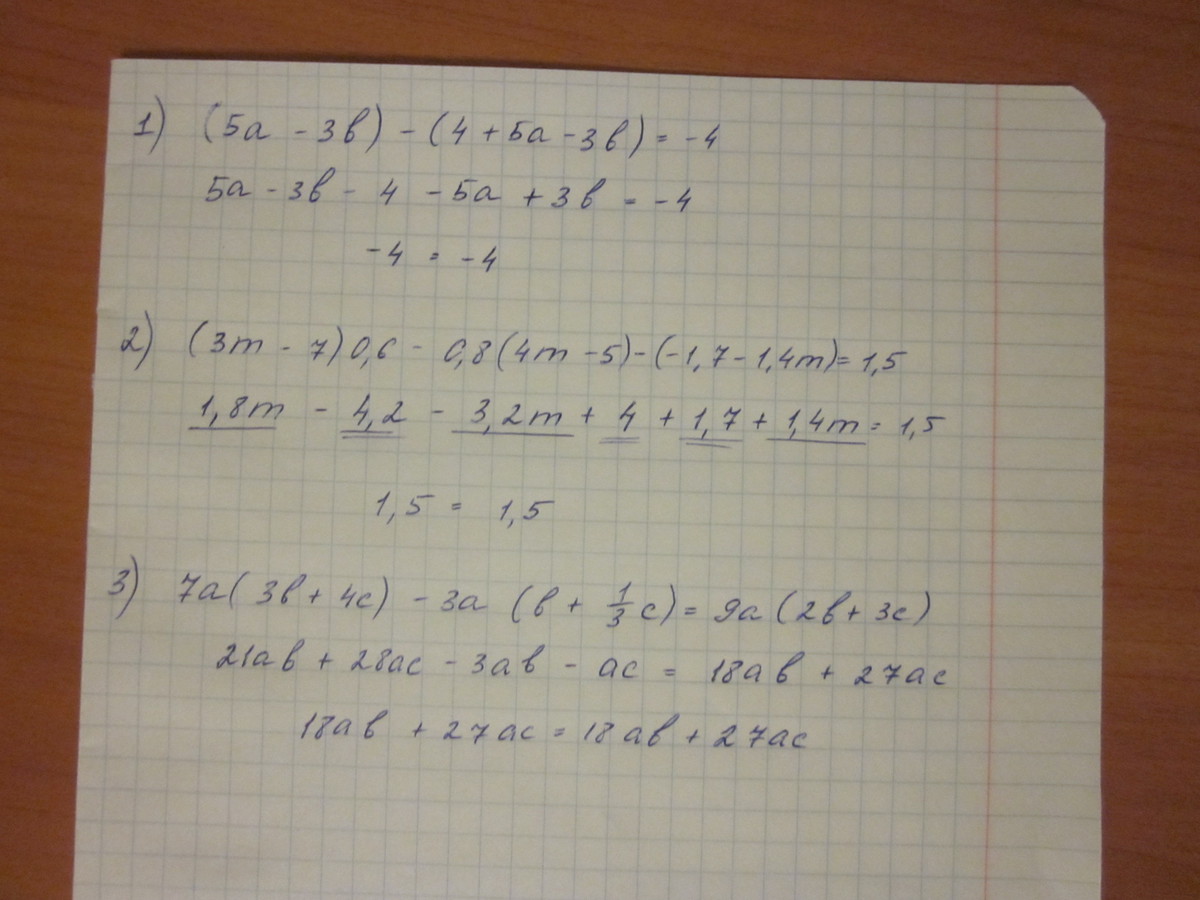 1) (5a - 3в) - (4 + 5a - 3в) = -4
5a - 3в - 4 - 5a + 3в = -4
-4 = -4
2) (3m - 7) 0,6 - 0,8(4m - 5) - (-1,7 - 1,4m) = 1,5
1,8m - 4,2 - 3,2m + 4 + 1,7 + 1,4m = 1,5
1,5 = 1,5
3) 7a(3в + 4c) - 3a (в + 1/3 c) = 9a (2в + 3c)
21aв + 28ac - 3aв - ac = 18aв + 27ac
18aв + 27ac = 18aв + 27ac